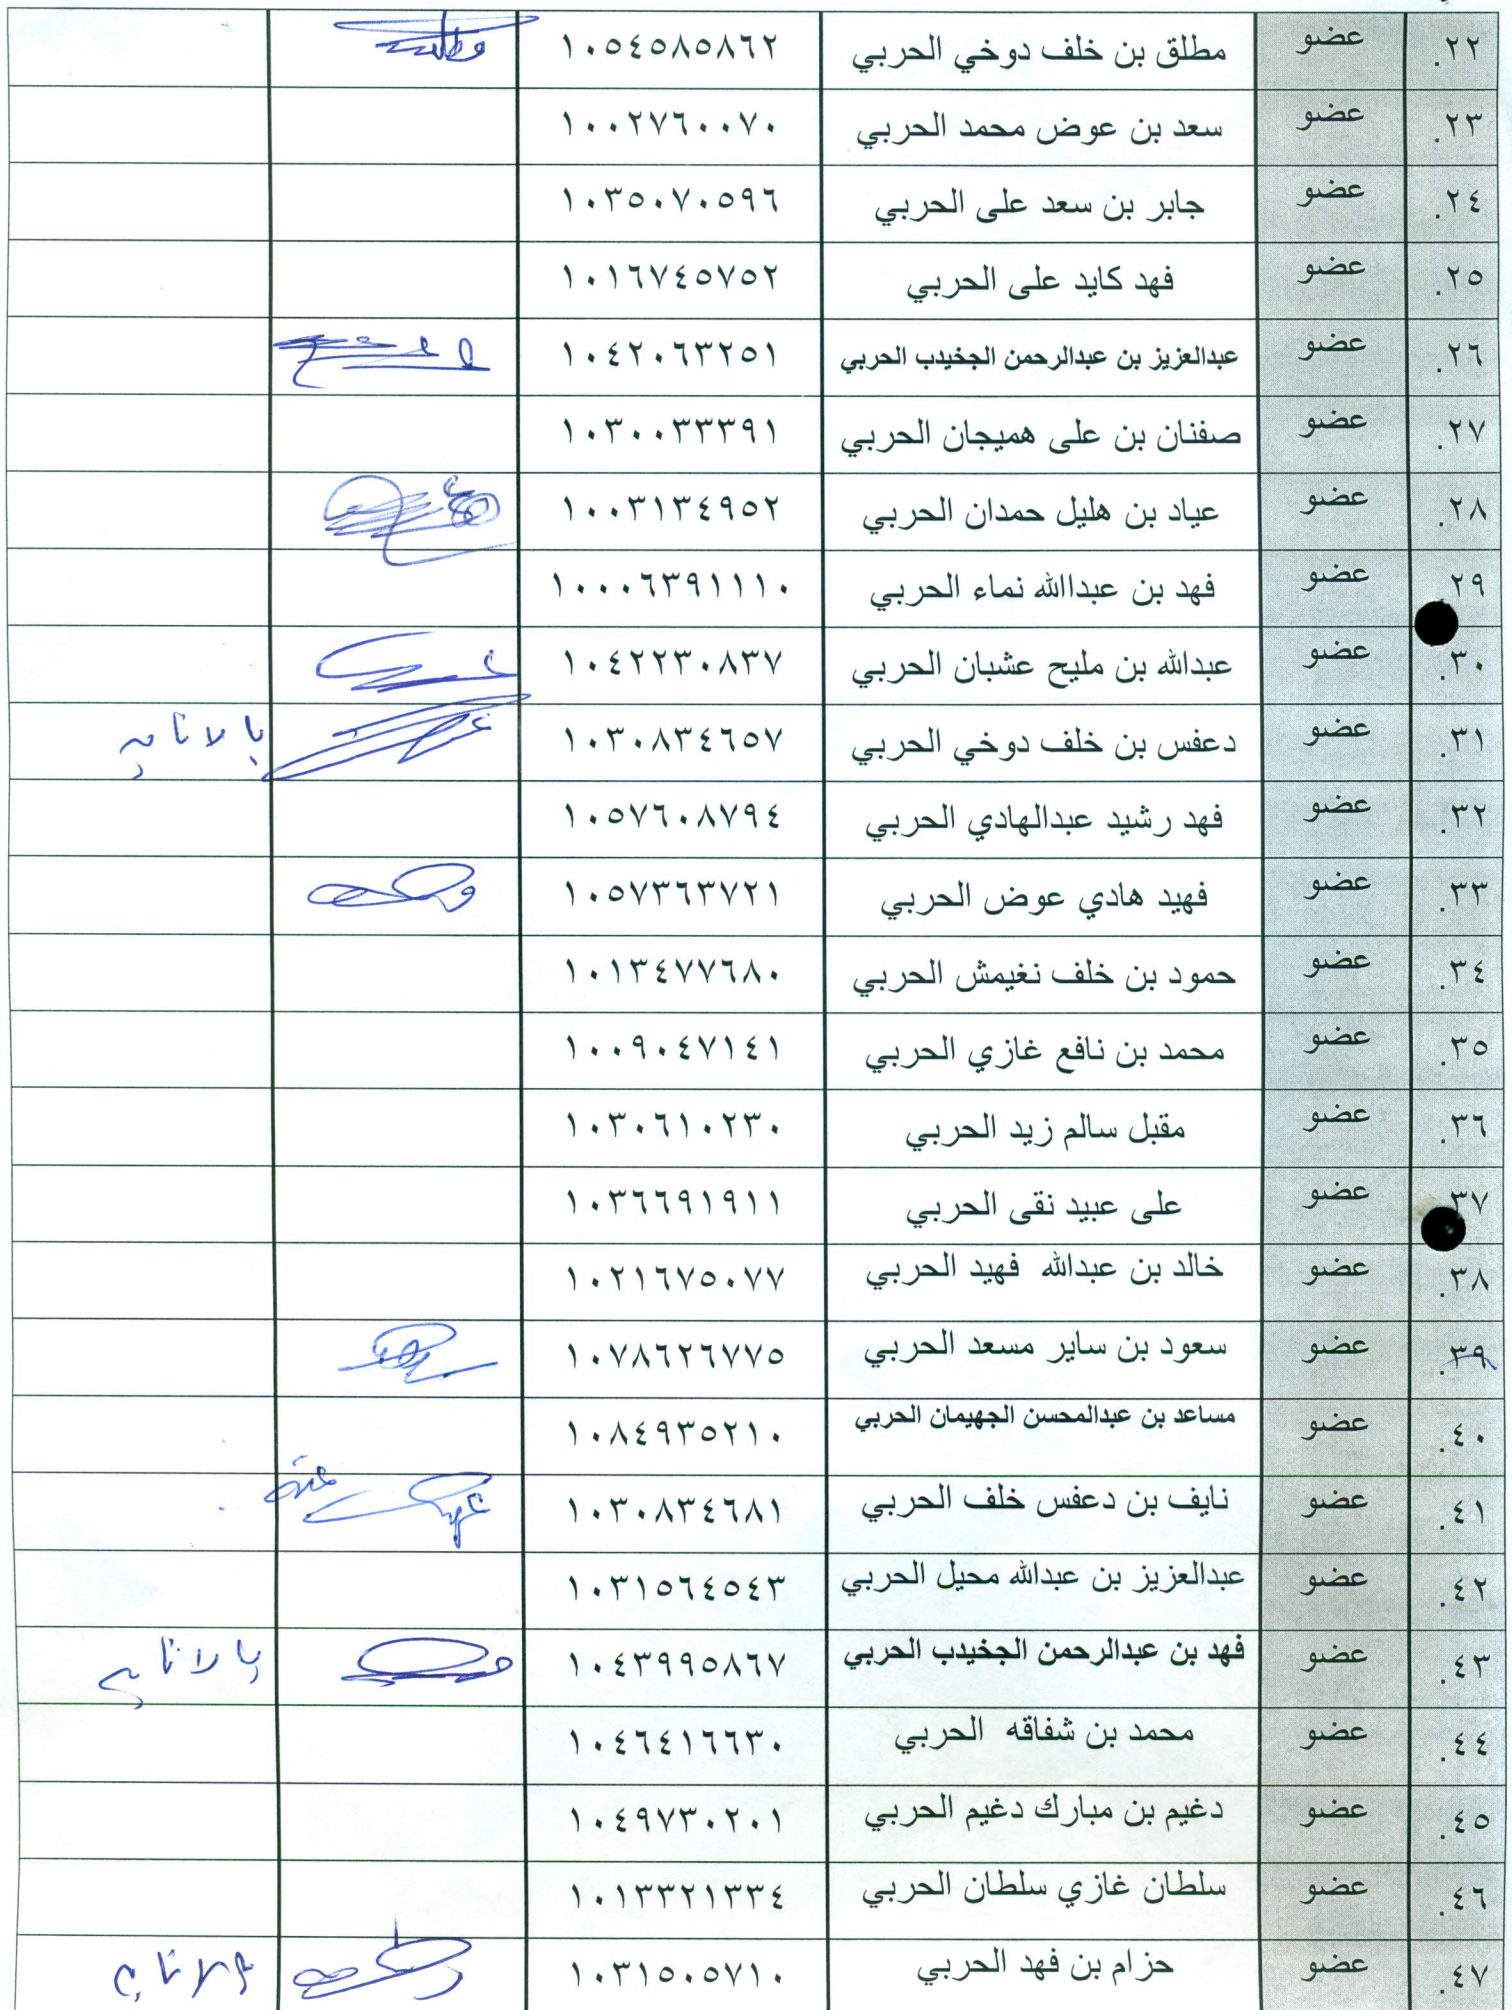 ٢٢. عضو مطلق بن خلف دوخي الحربي ١٠٥٤٥٨٥٨٦٢
٢٣. عضو سعد بن عوض محمد الحربي ١٠٠٢٧٦٠٠٧٠
٢٤. عضو جابر بن سعد على الحربي ١٠٣٥٠٧٠٥٩٦
٢٥. عضو فهد كايد على الحربي ١٠١٦٧٤٥٧٥٢
٢٦. عضو عبدالعزيز بن عبدالرحمن الجخيدب الحربي ١٠٤٢٠٦٣٢٥١
٢٧. عضو صفنان بن على هميجان الحربي ١٠٣٠٠٣٣٣٩١
٢٨. عضو عياد بن هليل حمدان الحربي ١٠٠٣١٣٤٩٥٢
٢٩. عضو فهد بن عبداالله نماء الحربي ١٠٠٠٦٣٩١١١٠
٣٠. عضو عبدالله بن مليح عشبان الحربي ١٠٤٢٢٣٠٨٣٧
٣١. عضو دعفس بن خلف دوخي الحربي ١٠٣٠٨٣٤٦٥٧ بالانابه
٣٢. عضو فهد رشيد عبدالهادي الحربي ١٠٥٧٦٠٨٧٩٤
٣٣. عضو فهيد هادي عوض الحربي ١٠٥٧٣٦٣٧٢١
٣٤. عضو حمود بن خلف نغيمش الحربي ١٠١٣٤٧٧٦٨٠
٣٥. عضو محمد بن نافع غازي الحربي ١٠٠٩٠٤٧١٤١
٣٦. عضو مقبل سالم زيد الحربي ١٠٣٠٦١٠٢٣٠
٣٧ عضو على عبيد نقى الحربي ١٠٣٦٦٩١٩١١
٣٨. عضو خالد بن عبدالله فهيد الحربي ١٠٢١٦٧٥٠٧٧
٣٩. عضو سعود بن ساير مسعد الحربي ١٠٧٨٦٢٦٧٧٥
٤٠. عضو مساعد بن عبدالمحسن الجهيمان الحربي ١٠٨٤٩٣٥٢١٠
٤١. عضو نايف بن دعفس خلف الحربي ١٠٣٠٨٣٤٦٨١
٤٢. عضو عبدالعزيز بن عبدالله محيل الحربي ١٠٣١٥٦٤٥٤٣
٤٣. عضو فهد بن عبدالرحمن الجخيدب الحربي ١٠٤٣٩٩٥٨٦٧ بالانابه
٤٤. عضو محمد بن شفاقه الحربي ١٠٤٦٤١٦٦٣٠
٤٥. عضو دغيم بن مبارك دغيم الحربي ١٠٤٩٧٣٠٢٠١
٤٦. عضو سلطان غازي سلطان الحربي ١٠١٣٣٢١٣٣٤
٤٧. عضو حزام بن فهد الحربي ١٠٣١٥٠٥٧١٠ بالانابه